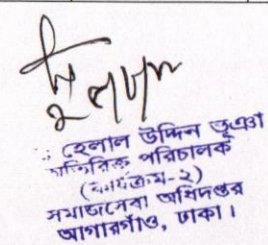 হেলাল উদ্দিন ভূঞা
অতিরিক্ত পরিচালক
(কার্যক্রম-২)
সমাজসেবা অধিদপ্তর
আগারগাঁও, ঢাকা।